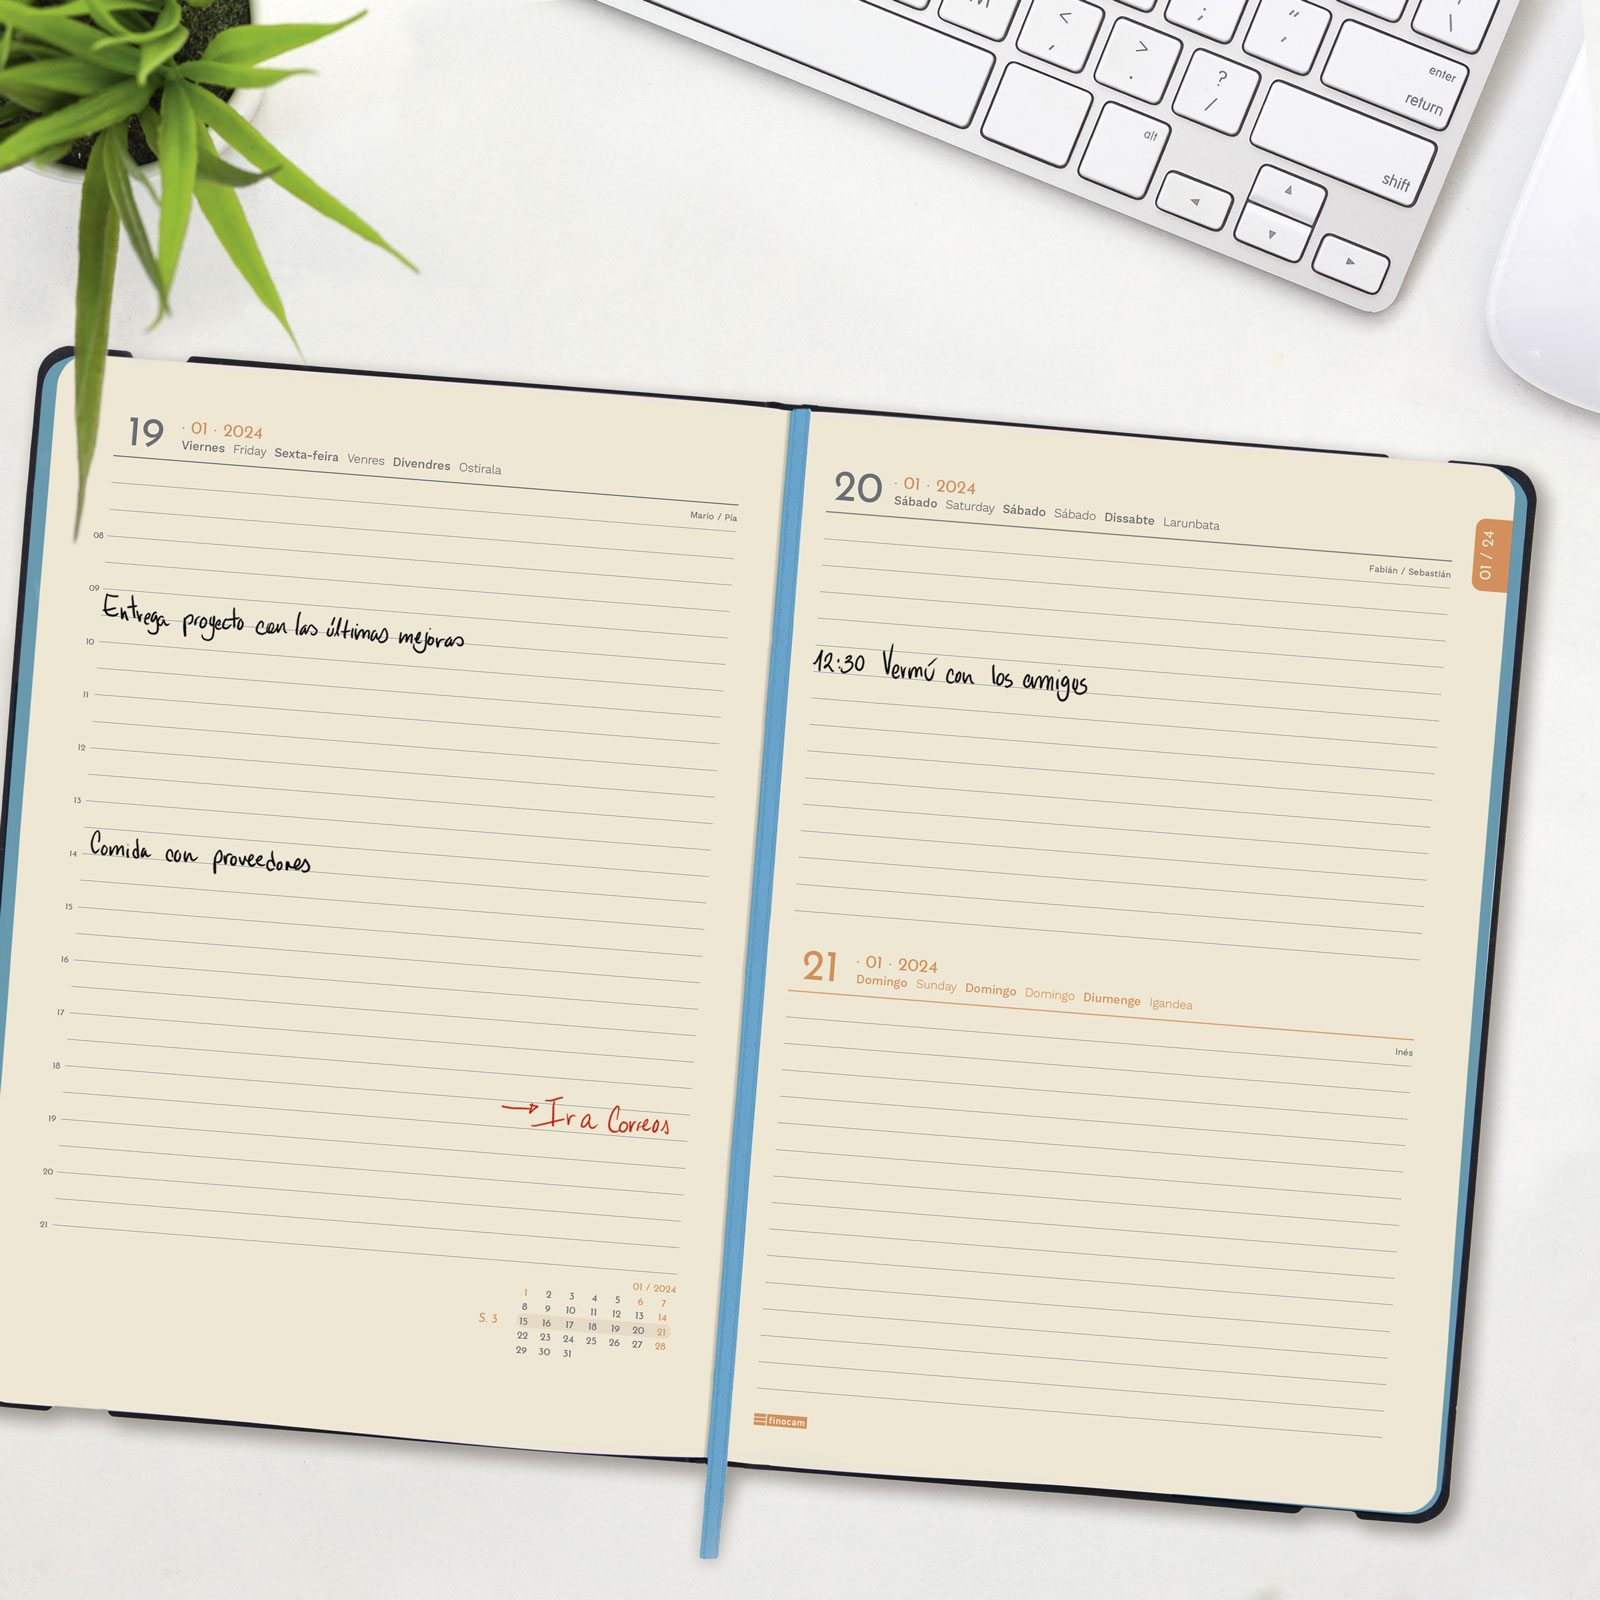 M
<
,
>
.
?
/
:
;
"
,
\
enter
return
alt
shift
19 · 01 · 2024
Viernes Friday Sexta-feira Venres Divendres Ostirala
Mario / Pía
08
09
Entrega proyecto con las últimas mejoras
10
11
12
13
Comida con proveedores
14
15
16
17
18
→ Ir a Correos
19
20
21
01 / 2024
1 2 3 4 5 6 7
8 9 10 11 12 13 14
S. 3 15 16 17 18 19 20 21
22 23 24 25 26 27 28
29 30 31
20 · 01 · 2024
Sábado Saturday Sábado Sábado Dissabte Larunbata
Fabián / Sebastián
01 / 24
12:30 Vermú con los amigos
21 · 01 · 2024
Domingo Sunday Domingo Domingo Diumenge Igandea
Inés
finocam